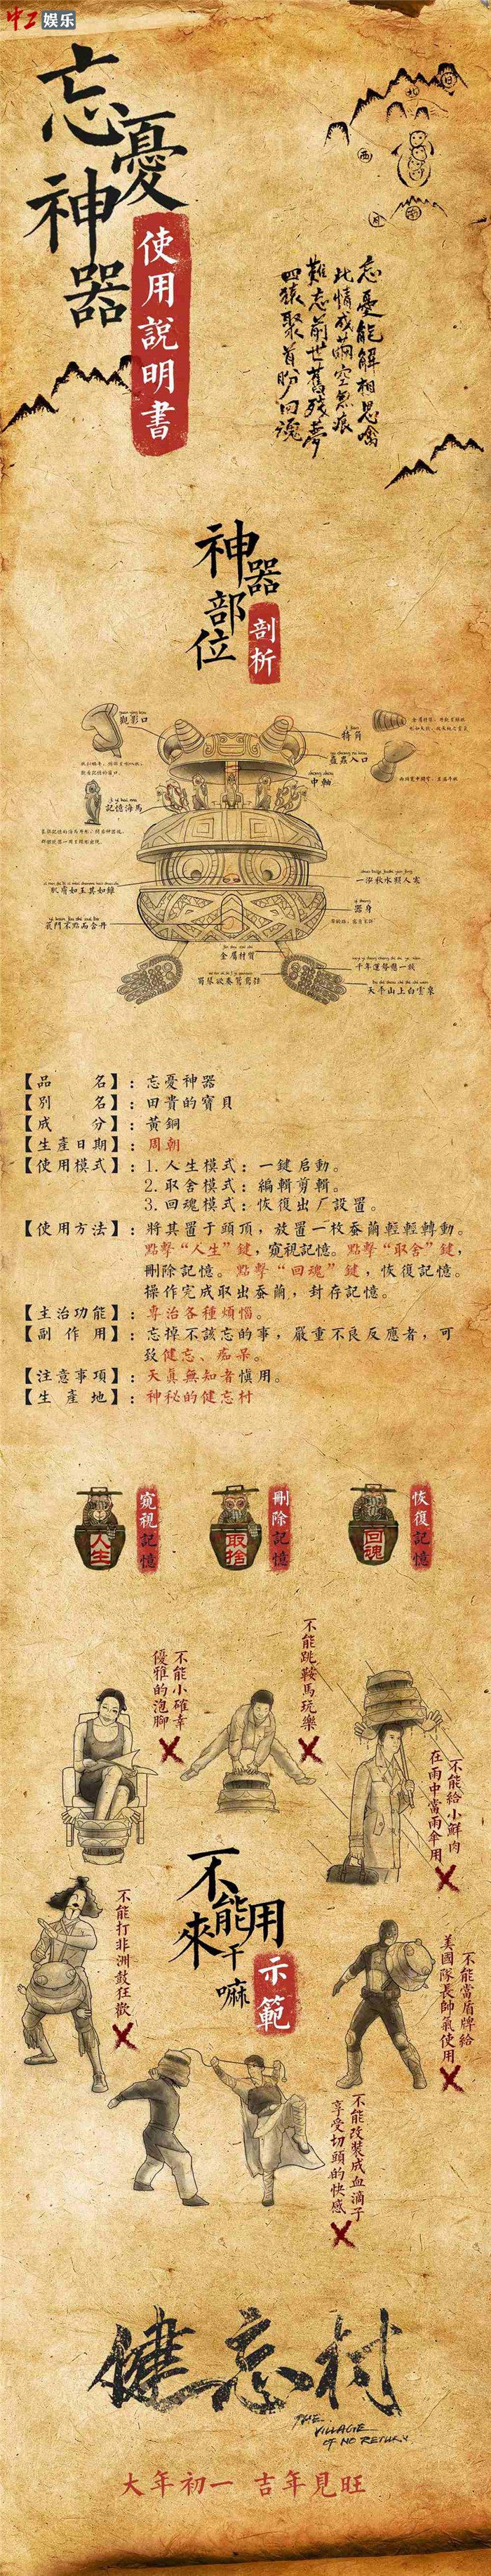 中工娱乐
忘憂神器
使用說明書
忘憂能解相思
此情成繭空無痕
難忘前世舊殘夢
四猿聚首盼回魂
神器部位
剖析
觀影口
犄角
蠶繭入口
中軸
記憶海馬
肌膚如玉其如雞
一泓秋水照人寒
器身
金屬材質
千年運勢懸一紋
天平山上白雲泉
【品名】：忘憂神器
【別名】：田貴的寶貝
【成分】：黃銅
【生產日期】：周朝
【使用模式】：1.人生模式：一鍵启動。
2.取舍模式：編輯剪輯。
3.回魂模式：恢復出厂設置。
【使用方法】：將其置于頭頂，放置一枚蚕繭輕輕轉動。
點擊“人生”鍵，窺視記憶。點擊“取舍”鍵，
刪除記憶。點擊“回魂”鍵，恢復記憶。
操作完成取出蚕繭，封存記憶。
【主治功能】：專治各種煩惱。
【副作用】：忘掉不該忘的事，嚴重不良反應者，可
致健忘、痴呆。
【注意事項】：天真無知者慎用。
【生產地】：神秘的健忘村
人生
窺視記憶
取捨
刪除記憶
回魂
恢復記憶
不能小確幸
優雅的泡腳
不能跳鞍馬玩樂
不能給小鮮肉
在雨中當雨傘用
不能用來干嘛
示範
不能打非洲鼓狂歡
不能當盾牌給
美國隊長帥氣使用
不能改裝成血滴子
享受切頭的快感
健忘村
THE
VILLAGE
OF NO RETURN
大年初一 吉年見旺